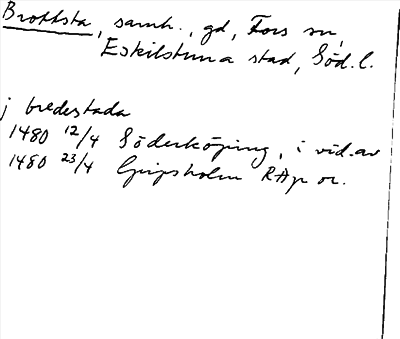 Brottsta, samh., gd, Fors sn,
Eskilstuna stad, Söd. l.
j bredestada
1480 12/4 Söderköping, i vid. av
1480 23/4 Gripsholm RAp or.